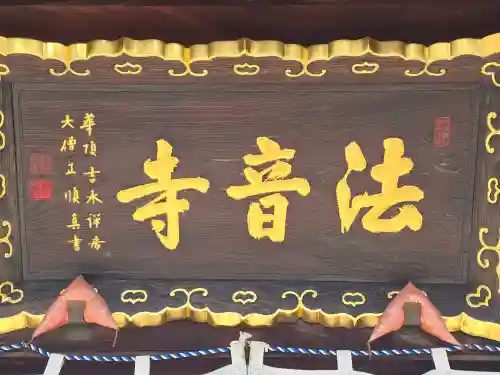 法音寺
華頂吉水禅房
大僧正唯真書